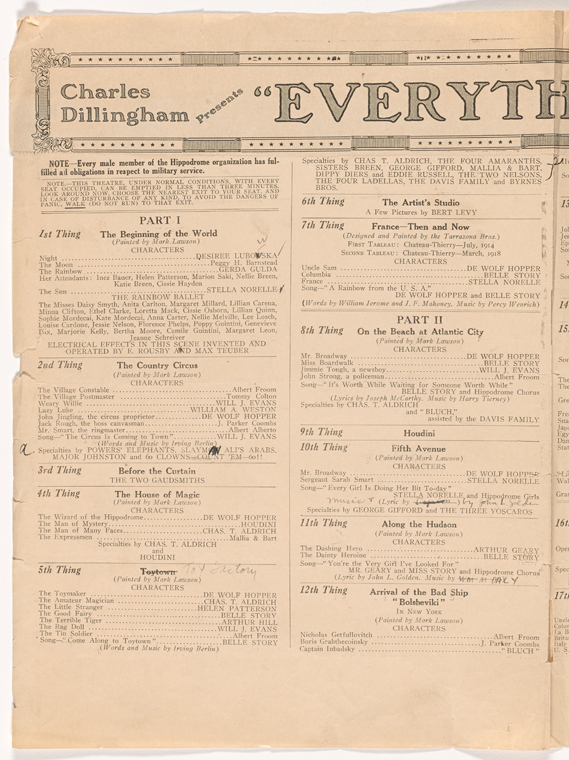 Charles
Dillingham
Presents
"EVERYTH
NOTE—Every male member of the Hippodrome organization has ful-
filled all obligations in respect to military service.
NOTE—THIS THEATRE, UNDER NORMAL CONDITIONS, WITH EVERY
SEAT OCCUPIED, CAN BE EMPTIED IN LESS THAN THREE MINUTES.
LOOK AROUND NOW, CHOOSE THE NEAREST EXIT TO YOUR SEAT, AND
IN CASE OF DISTURBANCE OF ANY KIND, TO AVOID THE DANGERS OF
PANIC, WALK (DO NOT RUN) TO THAT EXIT.
PART I
1st Thing The Beginning of the World
(Painted by Mark Lawson)
CHARACTERS
Night DESIREE LUBOWSKA
The Moon Peggy H. Barnstead
The Rainbow GERDA GULDA
Her Attendants: Inez Bauer, Helen Patterson, Marion Saki, Nellie Breen,
Katie Breen, Cissie Hayden
The Sun STELLA NORELLE
THE RAINBOW BALLET
The Misses Daisy Smyth, Anita Carlton, Margaret Millard, Lillian Carena,
Minna Clifton, Ethel Clarke, Loretta Mack, Cissie Osborn, Lillian Quinn,
Sophie Mordecai, Kate Mordecai, Anna Carter, Nellie Melville, Lee Losch,
Louise Cardone, Jessie Nelson, Florence Phelps, Poppy Guintini, Genevieve
Dix, Marjorie Kelly, Bertha Moore, Camile Guintini, Margaret Leon,
Jeanne Schreiver
ELECTRICAL EFFECTS IN THIS SCENE INVENTED AND
OPERATED BY E. ROUSBY AND MAX TEUBER
2nd Thing The Country Circus
(Painted by Mark Lawson)
CHARACTERS
The Village Constable Albert Froom
The Village Postmaster Tommy Colton
Weary Willie WILL J. EVANS
Lazy Luke WILLIAM A. WESTON
John Jingling, the circus proprietor DE WOLF HOPPER
Jack Rough, the boss canvasman J. Parker Coombs
Mr. Smart, the ringmaster Albert Alberto
Song—"The Circus Is Coming to Town" WILL J. EVANS
(Words and Music by Irving Berlin)
a Specialties by POWERS' ELEPHANTS, ALI'S ARABS,
MAJOR JOHNSTON and 60 CLOWNS—COUNT 'EM—60!!
3rd Thing Before the Curtain
THE TWO GAUDSMITHS
4th Thing The House of Magic
(Painted by Mark Lawson)
CHARACTERS
The Wizard of the Hippodrome DE WOLF HOPPER
The Man of Mystery HOUDINI
The Man of Many Faces CHAS. T. ALDRICH
The Expressmen Mallia & Bart
Specialties by CHAS. T. ALDRICH
and
HOUDINI
5th Thing Toytown Toy Factory
(Painted by Mark Lawson)
CHARACTERS
The Toymaker DE WOLF HOPPER
The Amateur Magician CHAS. T. ALDRICH
The Little Stranger HELEN PATTERSON
The Good Fairy BELLE STORY
The Terrible Tiger ARTHUR HILL
The Rag Doll WILL J. EVANS
The Tin Soldier Albert Froom
Song—"Come Along to Toytown" BELLE STORY
(Words and Music by Irving Berlin)
Specialties by CHAS T. ALDRICH, THE FOUR AMARANTHS,
SISTERS BREEN, GEORGE GIFFORD, MALLIA & BART,
DIPPY DIERS and EDDIE RUSSELL, THE TWO NELSONS,
THE FOUR LADELLAS, THE DAVIS FAMILY and BYRNES
BROS.
6th Thing The Artist's Studio
A Few Pictures by BERT LEVY
7th Thing France—Then and Now
(Designed and Painted by the Tarrazona Bros.)
FIRST TABLEAU: Chateau-Thierry—July, 1914
SECOND TABLEAU: Chateau-Thierry—March, 1918
CHARACTERS
Uncle Sam DE WOLF HOPPER
Columbia BELLE STORY
France STELLA NORELLE
Song—"A Rainbow from the U. S. A."
DE WOLF HOPPER and BELLE STORY
(Words by William Jerome and J. F. Mahoney, Music by Percy Wenrich)
PART II
8th Thing On the Beach at Atlantic City
(Painted by Mark Lawson)
CHARACTERS
Mr. Broadway DE WOLF HOPPER
Miss Boardwalk BELLE STORY
Jimmie Tough, a newsboy WILL J. EVANS
John Strong, a policeman Albert Froom
Song—"It's Worth While Waiting for Someone Worth While"
BELLE STORY and Hippodrome Chorus
(Lyrics by Joseph McCarthy. Music by Harry Tierney)
Specialties by CHAS. T. ALDRICH
and "BLUCH,"
assisted by the DAVIS FAMILY
9th Thing Houdini
10th Thing Fifth Avenue
(Painted by Mark Lawson)
CHARACTERS
Mr. Broadway DE WOLF HOPPER
Sergeant Sarah Smart STELLA NORELLE
Song—"Every Girl Is Doing Her Bit To-day"
STELLA NORELLE and Hippodrome Girls
music & (Lyric by
Specialties by GEORGE GIFFORD and THE THREE YOSCAROS
11th Thing Along the Hudson
(Painted by Mark Lawson)
CHARACTERS
The Dashing Hero ARTHUR GEARY
The Dainty Heroine BELLE STORY
Song—"You're the Very Girl I've Looked For"
MR. GEARY and MISS STORY and Hippodrome Chorus
(Lyric by John L. Golden. Music by
12th Thing Arrival of the Bad Ship
"Bolsheviki"
IN NEW YORK
(Painted by Mark Lawson)
CHARACTERS
Nicholas Getfullovitch Albert Froom
Boris Grabthecoinsky J. Parker Coombs
Captain Inbadsky "BLUCH"
17th